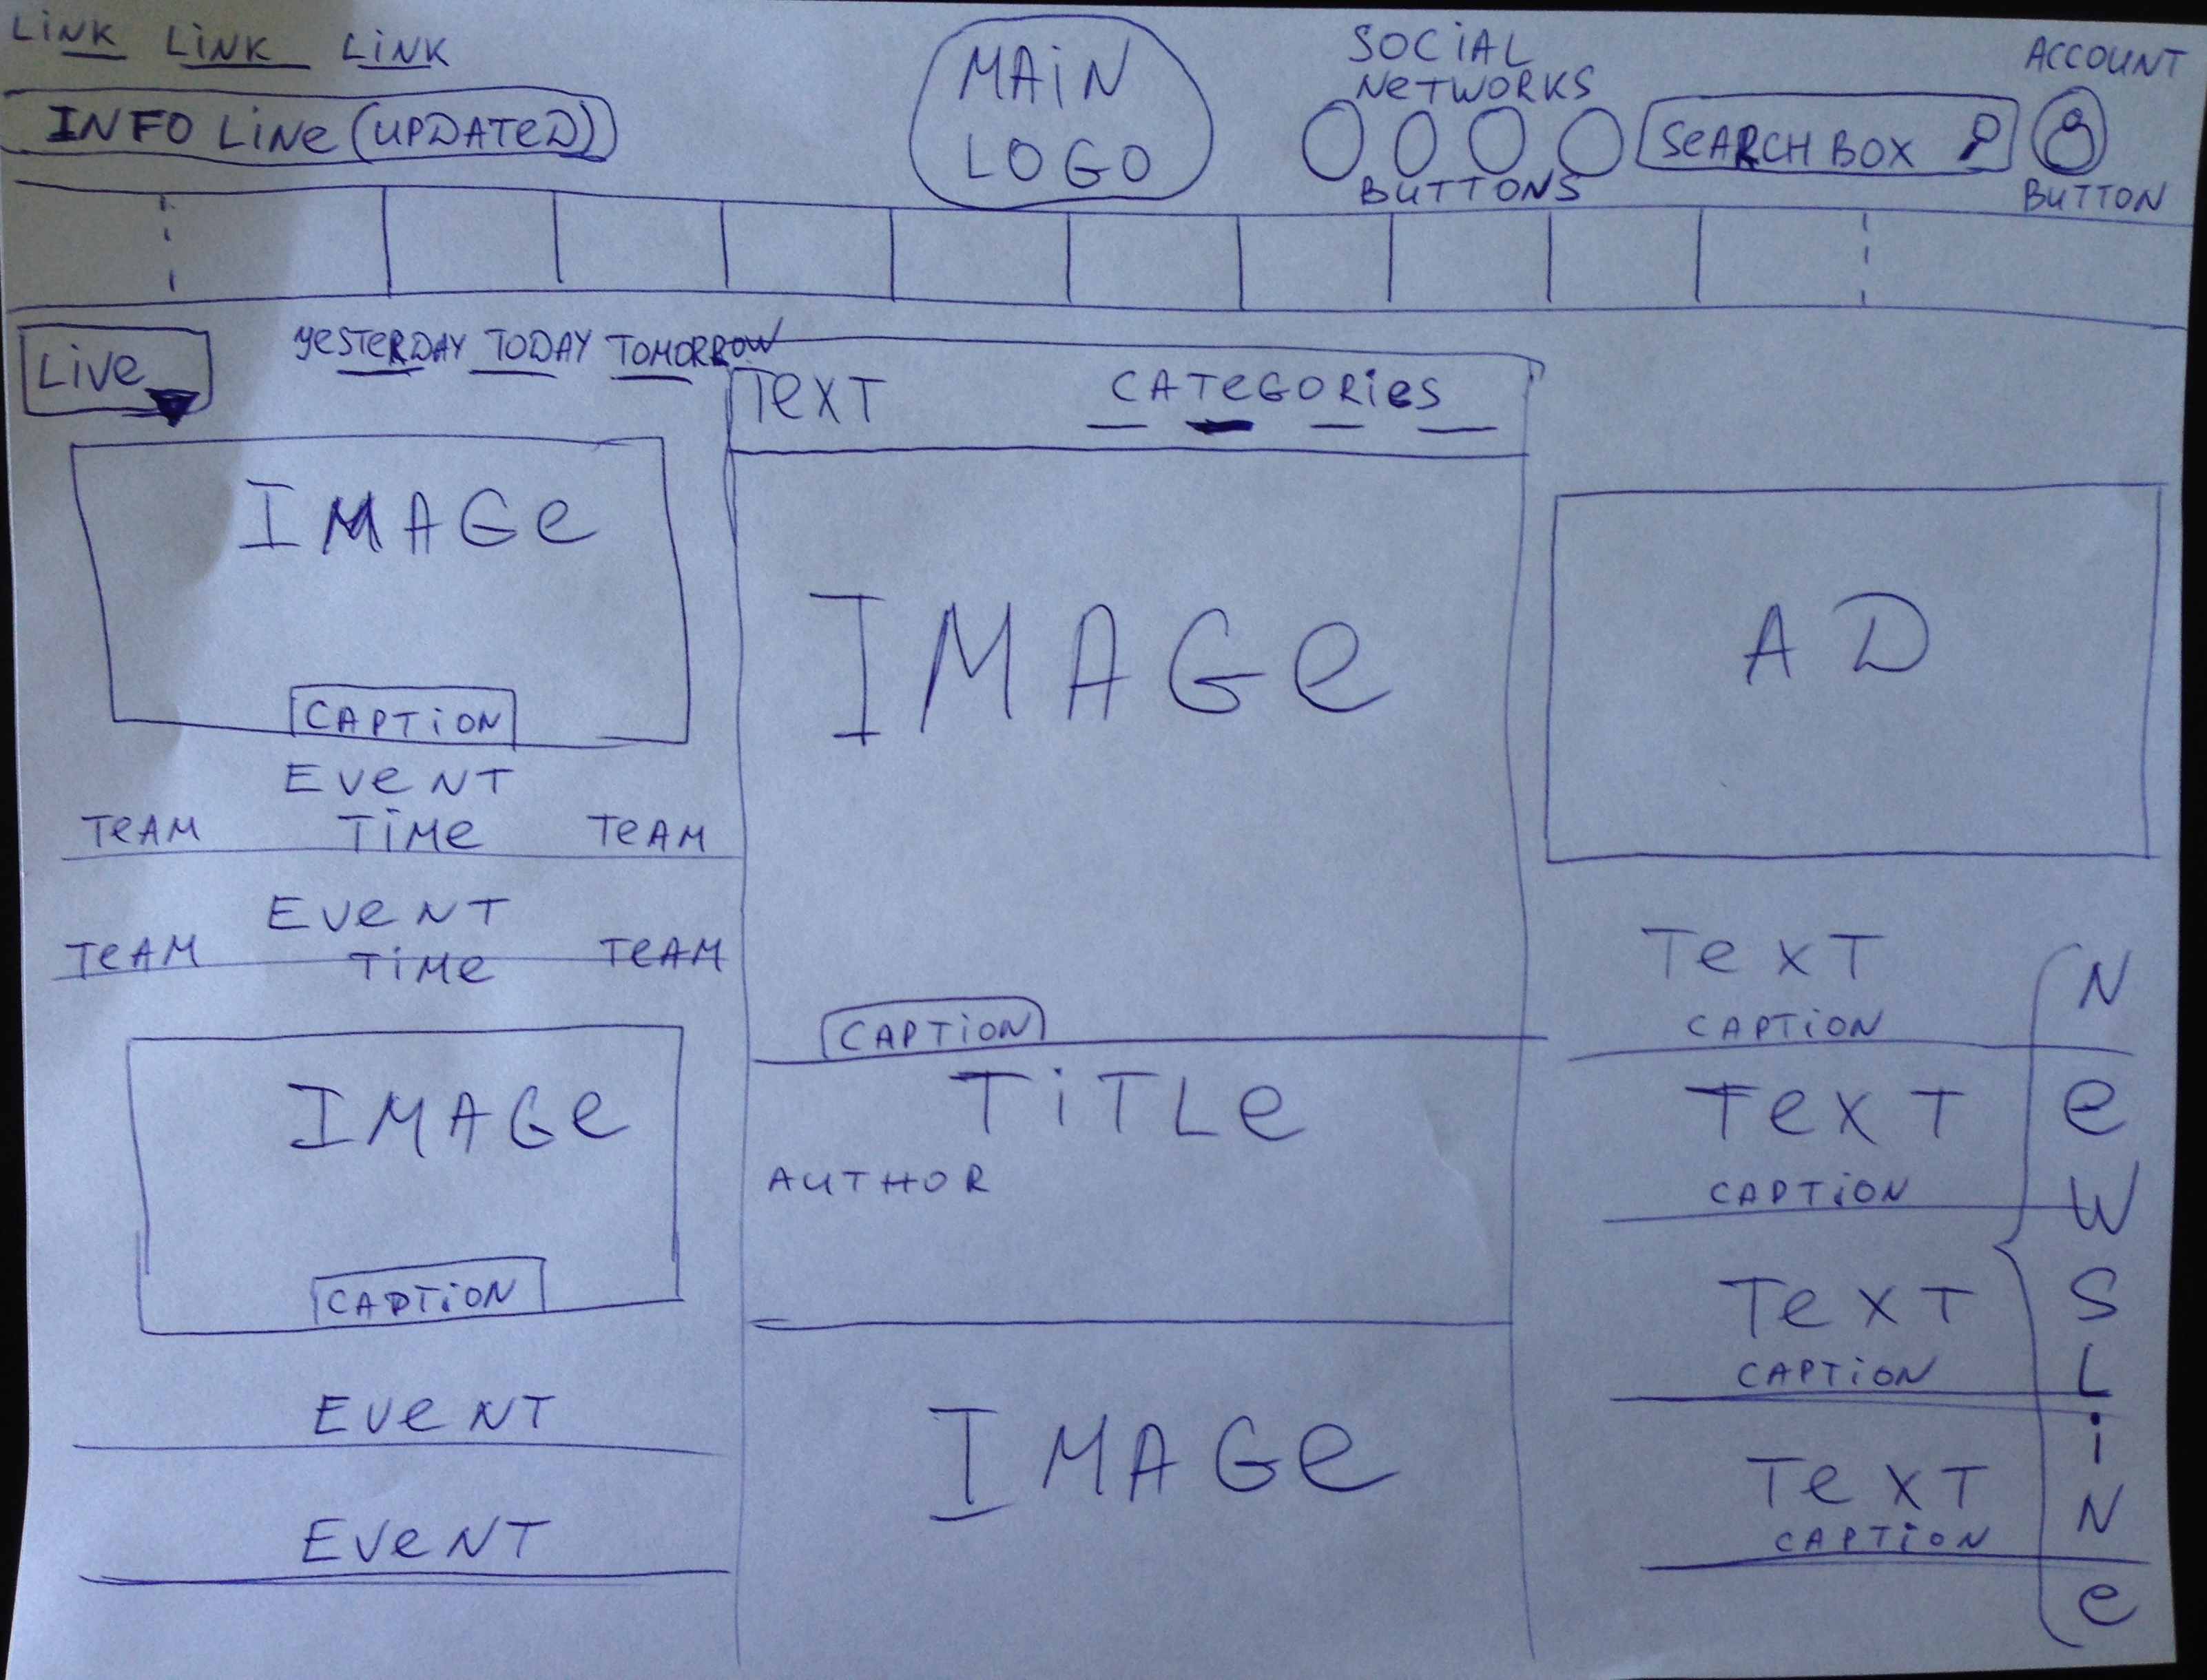 LINK LINK LINK
INFO LINE (UPDATED)
MAIN
LOGO
SOCIAL
NETWORKS
BUTTONS
SEARCH BOX
ACCOUNT
BUTTON
LIVE
YESTERDAY TODAY TOMORROW
IMAGE
CAPTION
EVENT
TEAM TIME TEAM
EVENT
TEAM TIME TEAM
IMAGE
CAPTION
EVENT
EVENT
TEXT CATEGORIES
IMAGE
CAPTION
TITLE
AUTHOR
IMAGE
AD
TEXT
CAPTION
TEXT
CAPTION
TEXT
CAPTION
TEXT
CAPTION
NEWSLINE